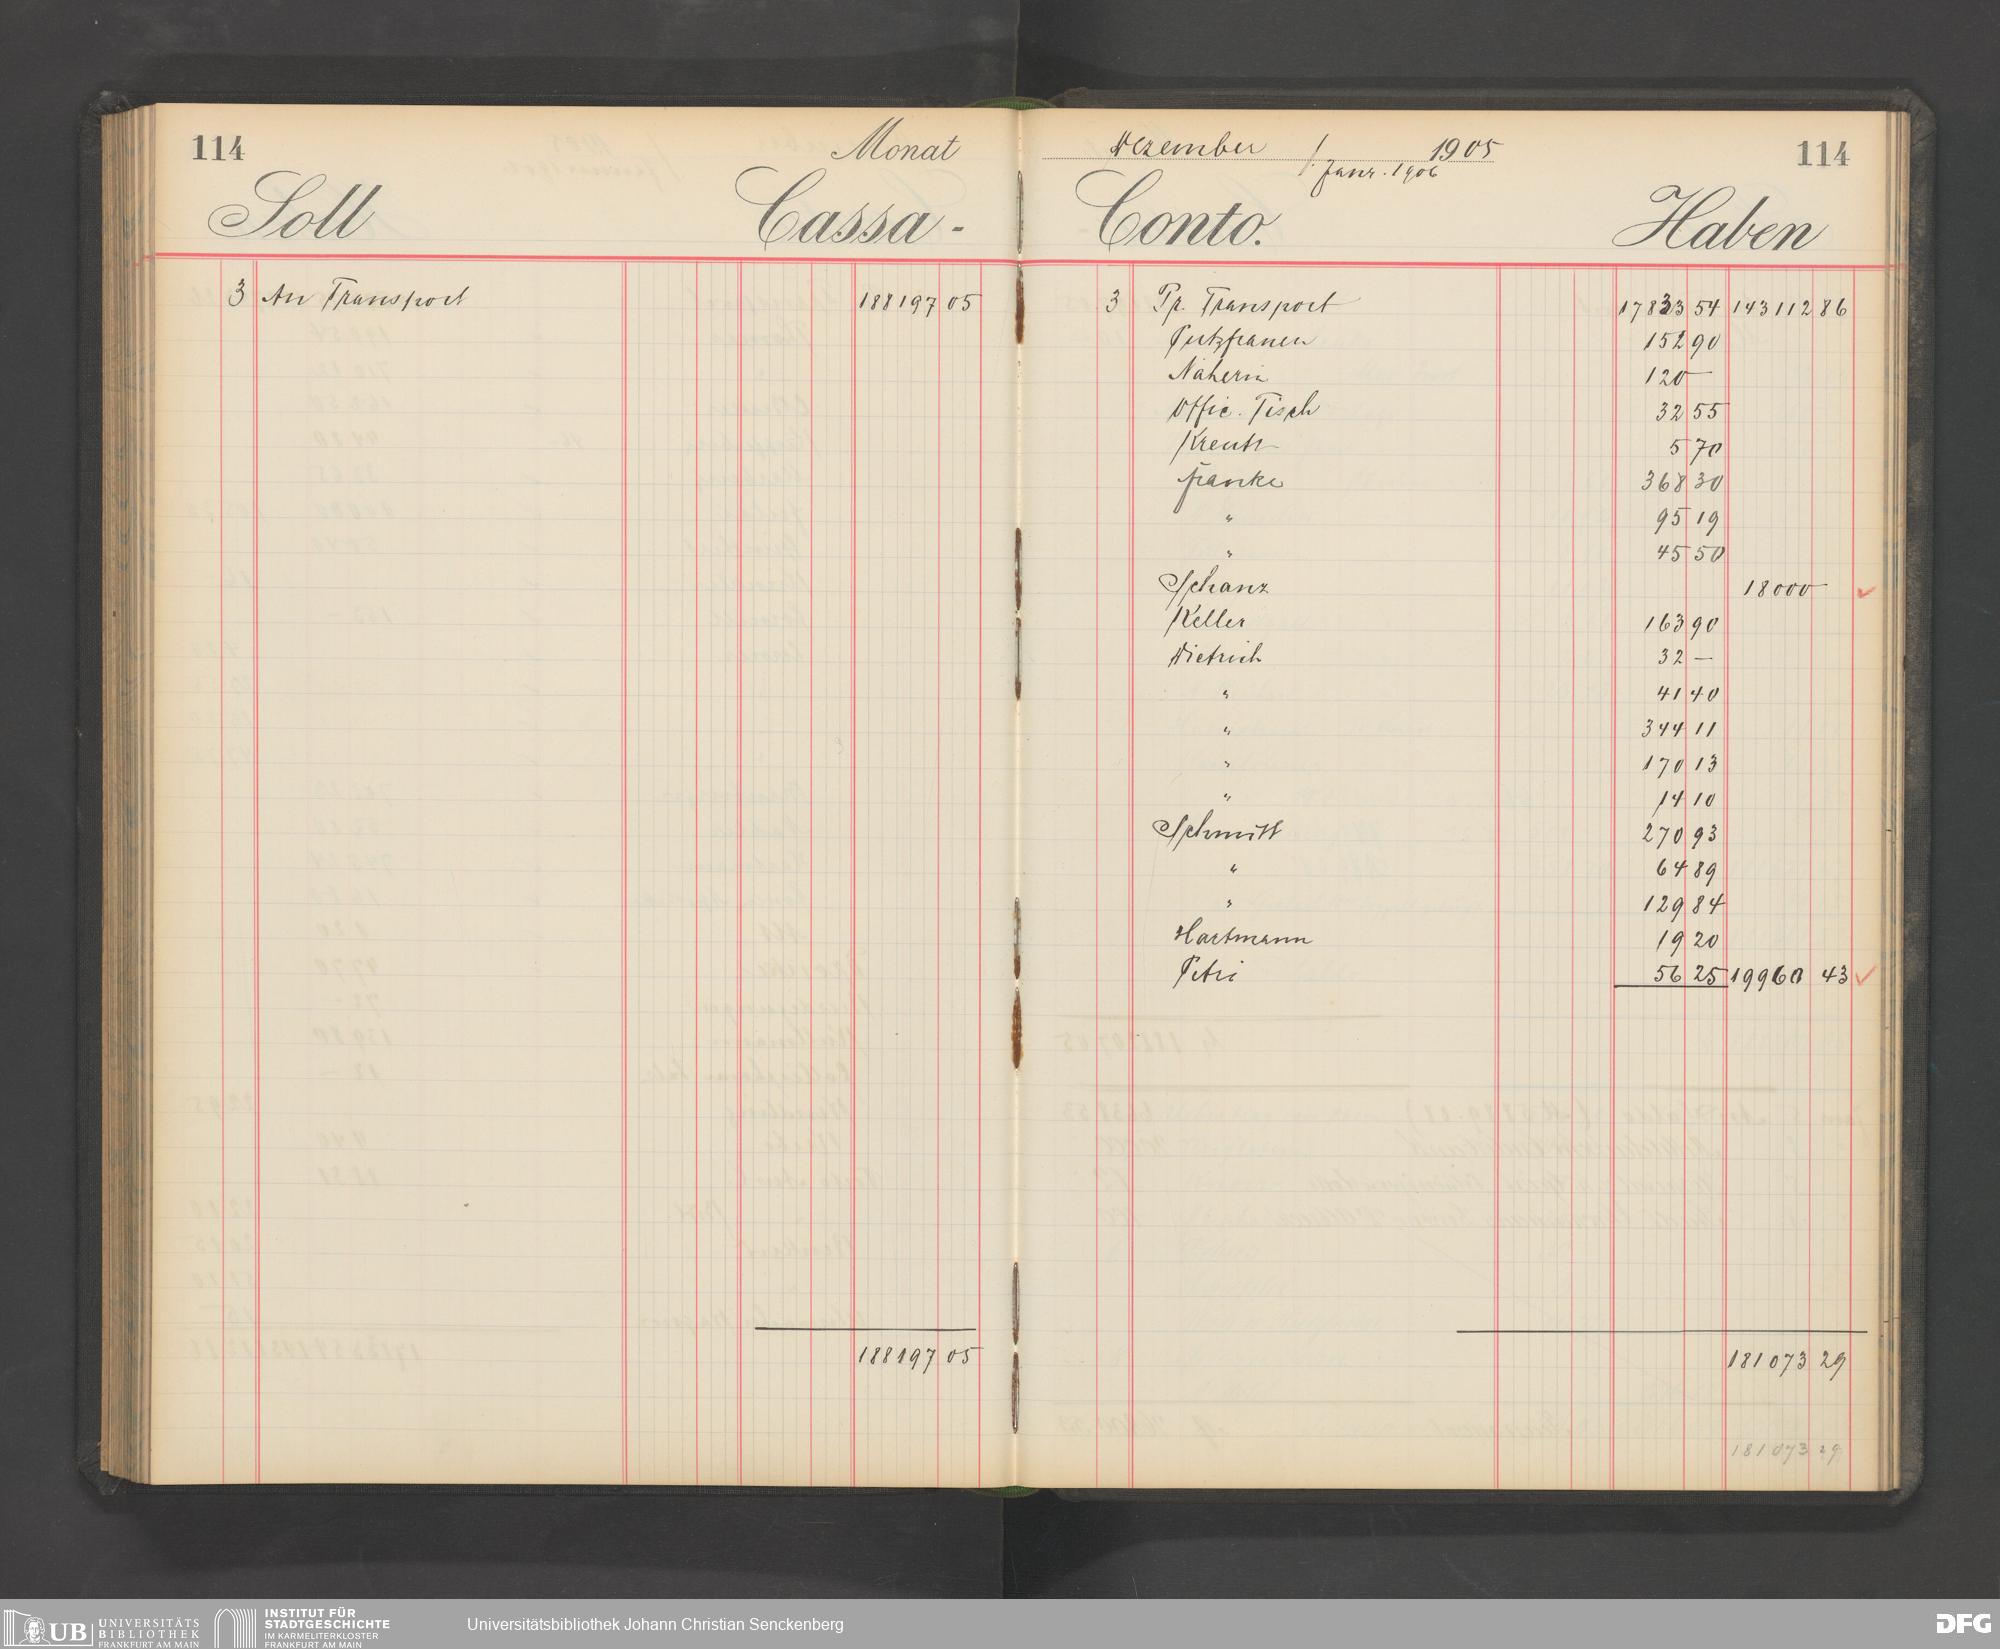 114 Monat
Soll Cassa-
3 An Transport 188197 05
188197 05
Dezember / 1905 114
Janr. 1906
Conto. Haben
3 Pr. Transport 17833 54 143112 86
Putzfrauen 152 90
Näherin 120 —
Offic. Tisch 32 55
Kreutz 5 70
Francke 368 30
" 95 19
" 45 50
Schanz 18000 —
Keller 163 90
Dietrich 32 —
" 41 40
" 344 11
" 170 13
" 14 10
Schmitt 270 93
" 64 89
" 129 84
Hartmann 19 20
Petri 56 25 19960 43
181073 29
181073 29
UB UNIVERSITÄTS
BIBLIOTHEK
FRANKFURT AM MAIN
INSTITUT FÜR
STADTGESCHICHTE
IM KARMELITERKLOSTER
FRANKFURT AM MAIN
Universitätsbibliothek Johann Christian Senckenberg
DFG